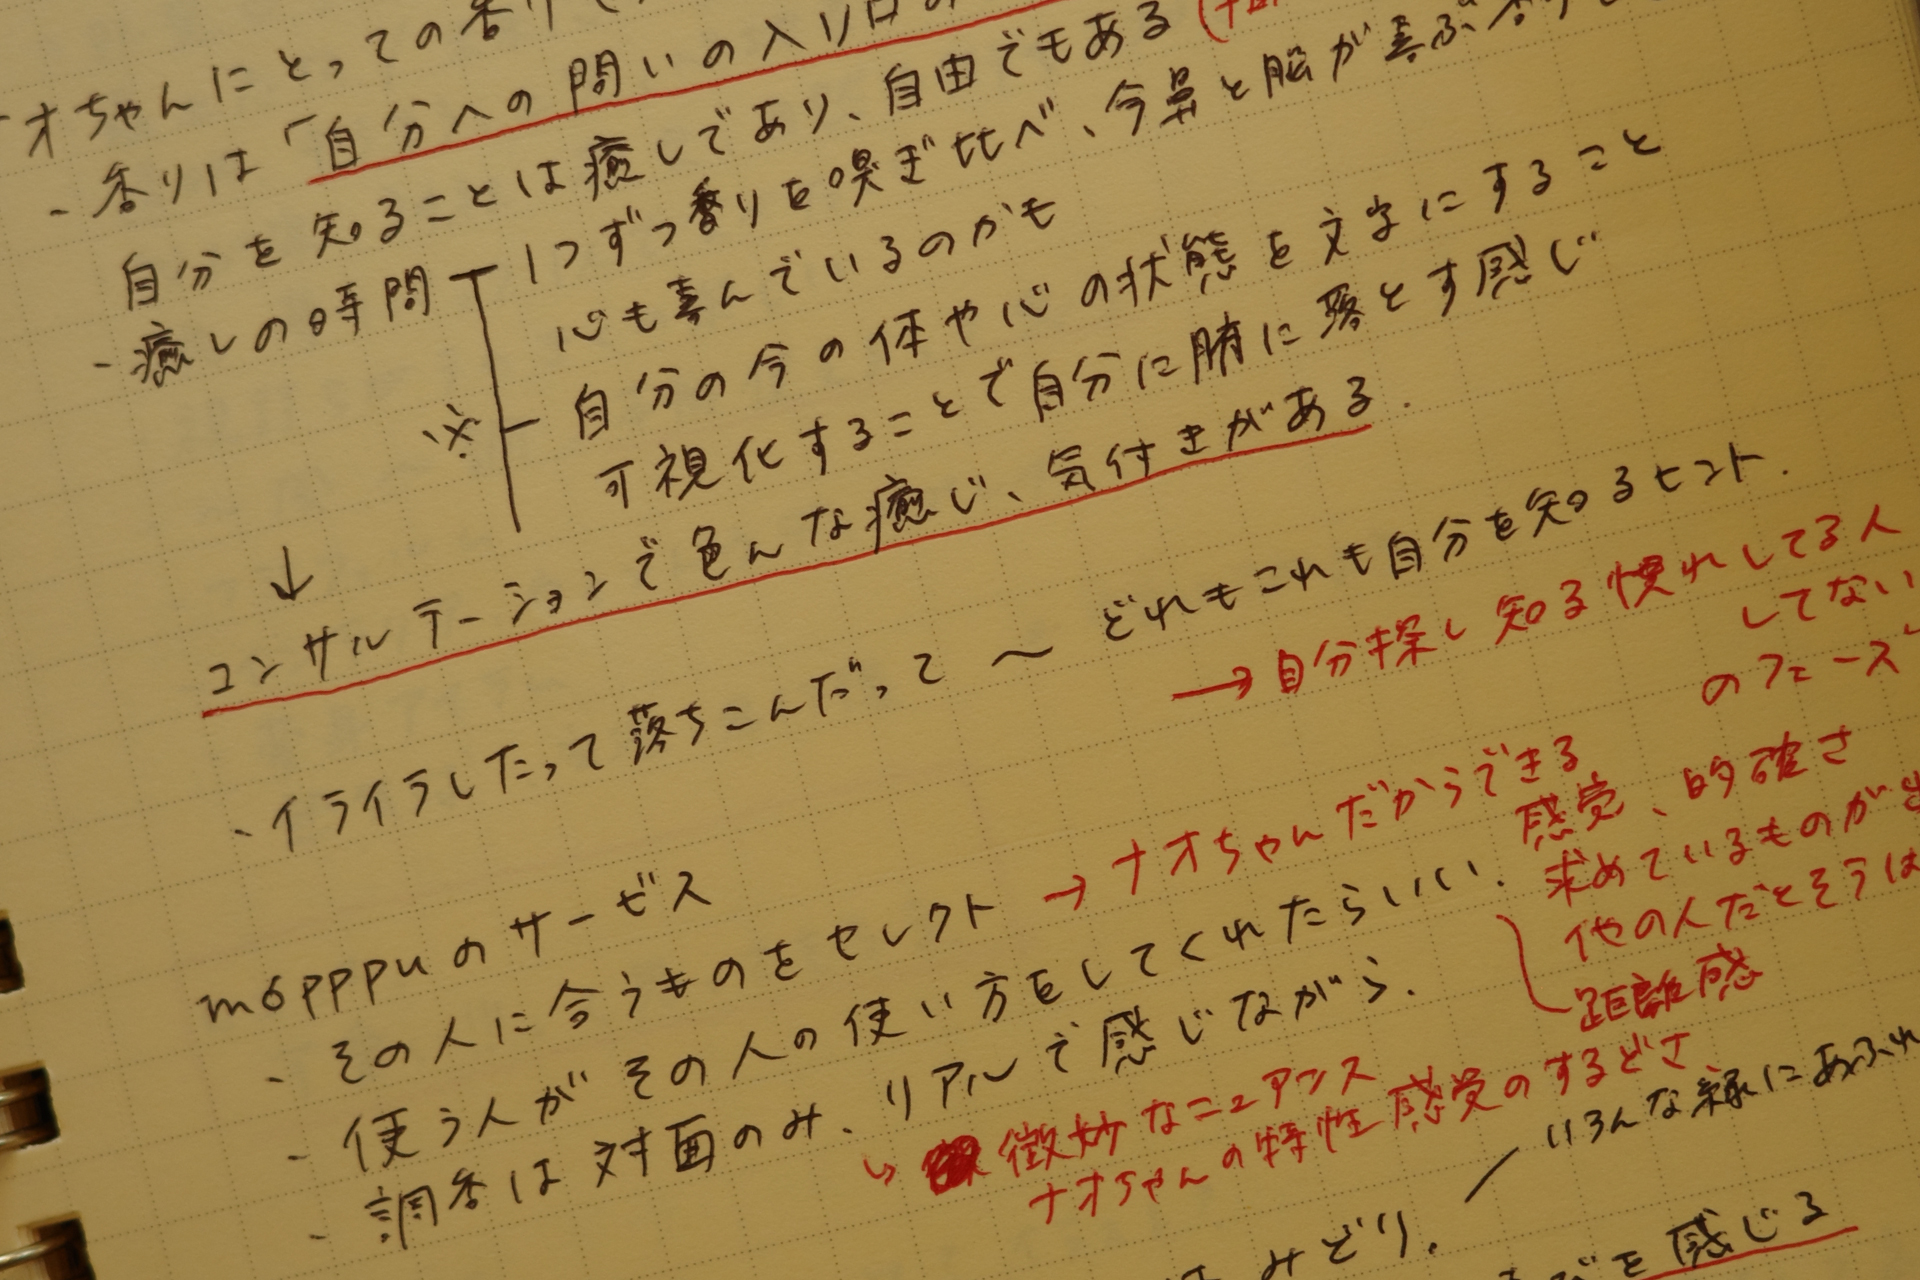 ナオちゃんにとっての香り
- 香りは「自分への問いの入り口
自分を知ることは癒しであり、自由でもある (
- 癒しの時間 1つずつ香りを嗅ぎ比べ、今鼻と脳が喜ぶ香り
心も喜んでいるのかも
※ 自分の今の体や心の状態を文字にすること
可視化することで自分に腑に落とす感じ
↓
コンサルテーションで色んな癒じ、気付きがある.
- イライラしたって落ちこんだって 〜 どれもこれも自分を知るヒント.
→ 自分探し 知る 慣れしてる人
してない
のフェーズ
mópppuのサービス
- その人に合うものをセレクト → ナオちゃんだからできる
感覚、的確さ
求めているものが
他の人だとそうは
距離感
- 使う人がその人の使い方をしてくれたらいい.
- 調香は対面のみ、リアルで感じながら.
↳ 微妙なニュアンス
ナオちゃんの特性 感覚のするどさ
みどり. いろんな緑にあふれ
を感じる